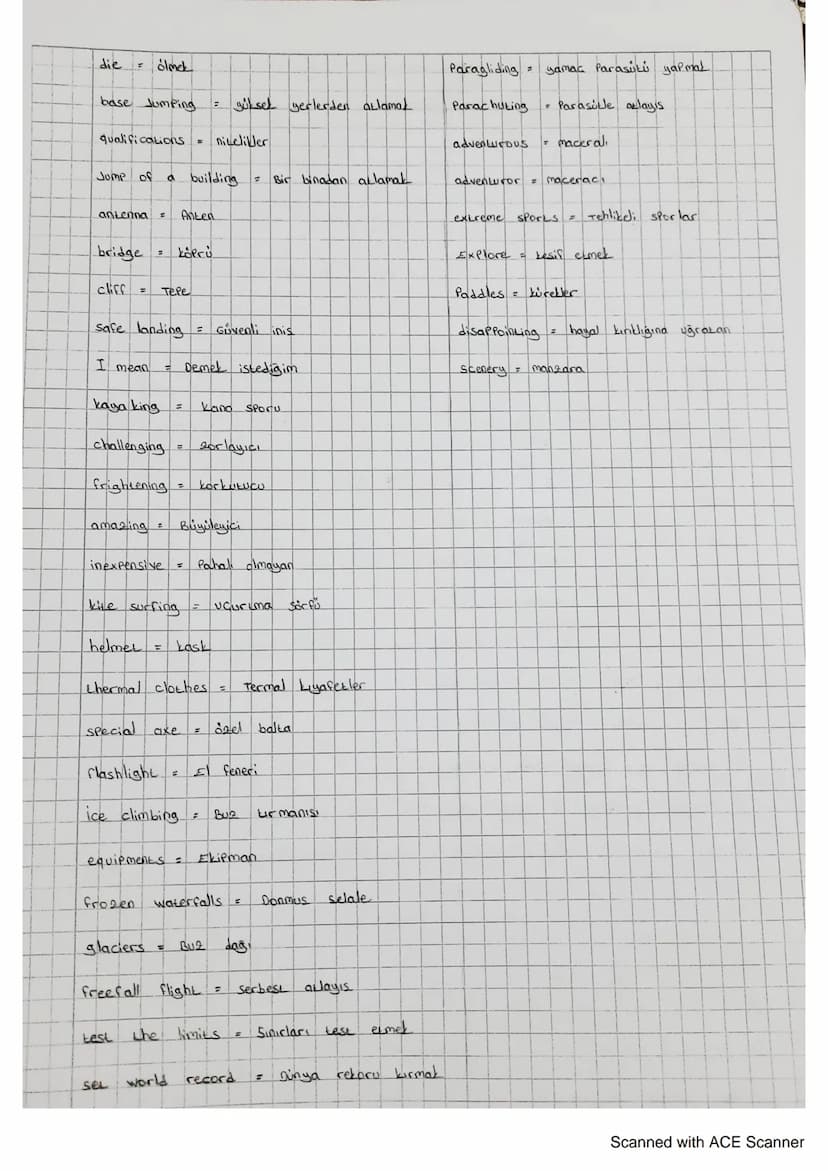 die = ölmek
base Jumping = yüksek yerlerden atlamak
qualifications = nitelikler
Jump of a building = Bir binadan atlamak
antenna = Anten
bridge = köprü
cliff = Tepe
safe landing = Güvenli inis
I mean = Demek istediğim
kayaking = kano sporu
challenging = zorlayıcı
frightening = korkutucu
amazing = Büyüleyici
inexpensive = Pahalı olmayan
kite surfing = uçurtma sörfü
helmet = kask
thermal clothes = Termal kıyafetler
special axe = özel balta
flashlight = El feneri
ice climbing = Buz tırmanısı
equipments = Ekipman
frozen waterfalls = Donmus selale
glaciers = Buz dağı
freefall flight = serbest atlayıs
test the limits = Sınırları test etmek
set world record = Dünya rekoru kırmak
Paragliding = yamac Parasütü yapmak
Parachuting = Parasütle atlayis
adventurous = maceralı
adventuror = maceracı
extreme sports = Tehlikeli sporlar
Explore = kesif etmek
Paddles = kürekler
disappointing = hayal kırıklığına uğratan
scenery = manzara
Scanned with ACE Scanner